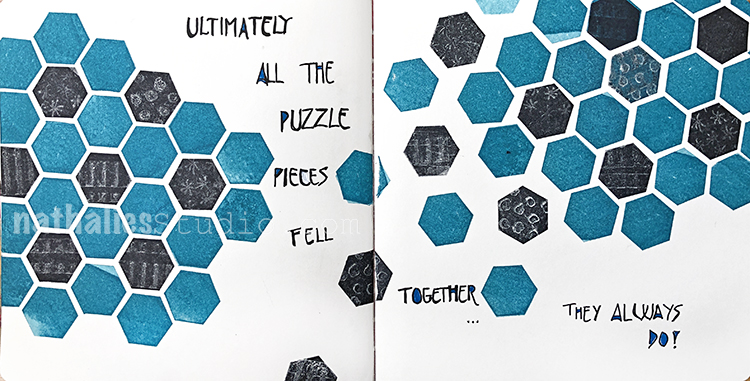 ULTIMATELY
ALL THE
PUZZLE
PIECES
FELL
TOGETHER
...
THEY ALWAYS
DO!
nathaliesstudio.com